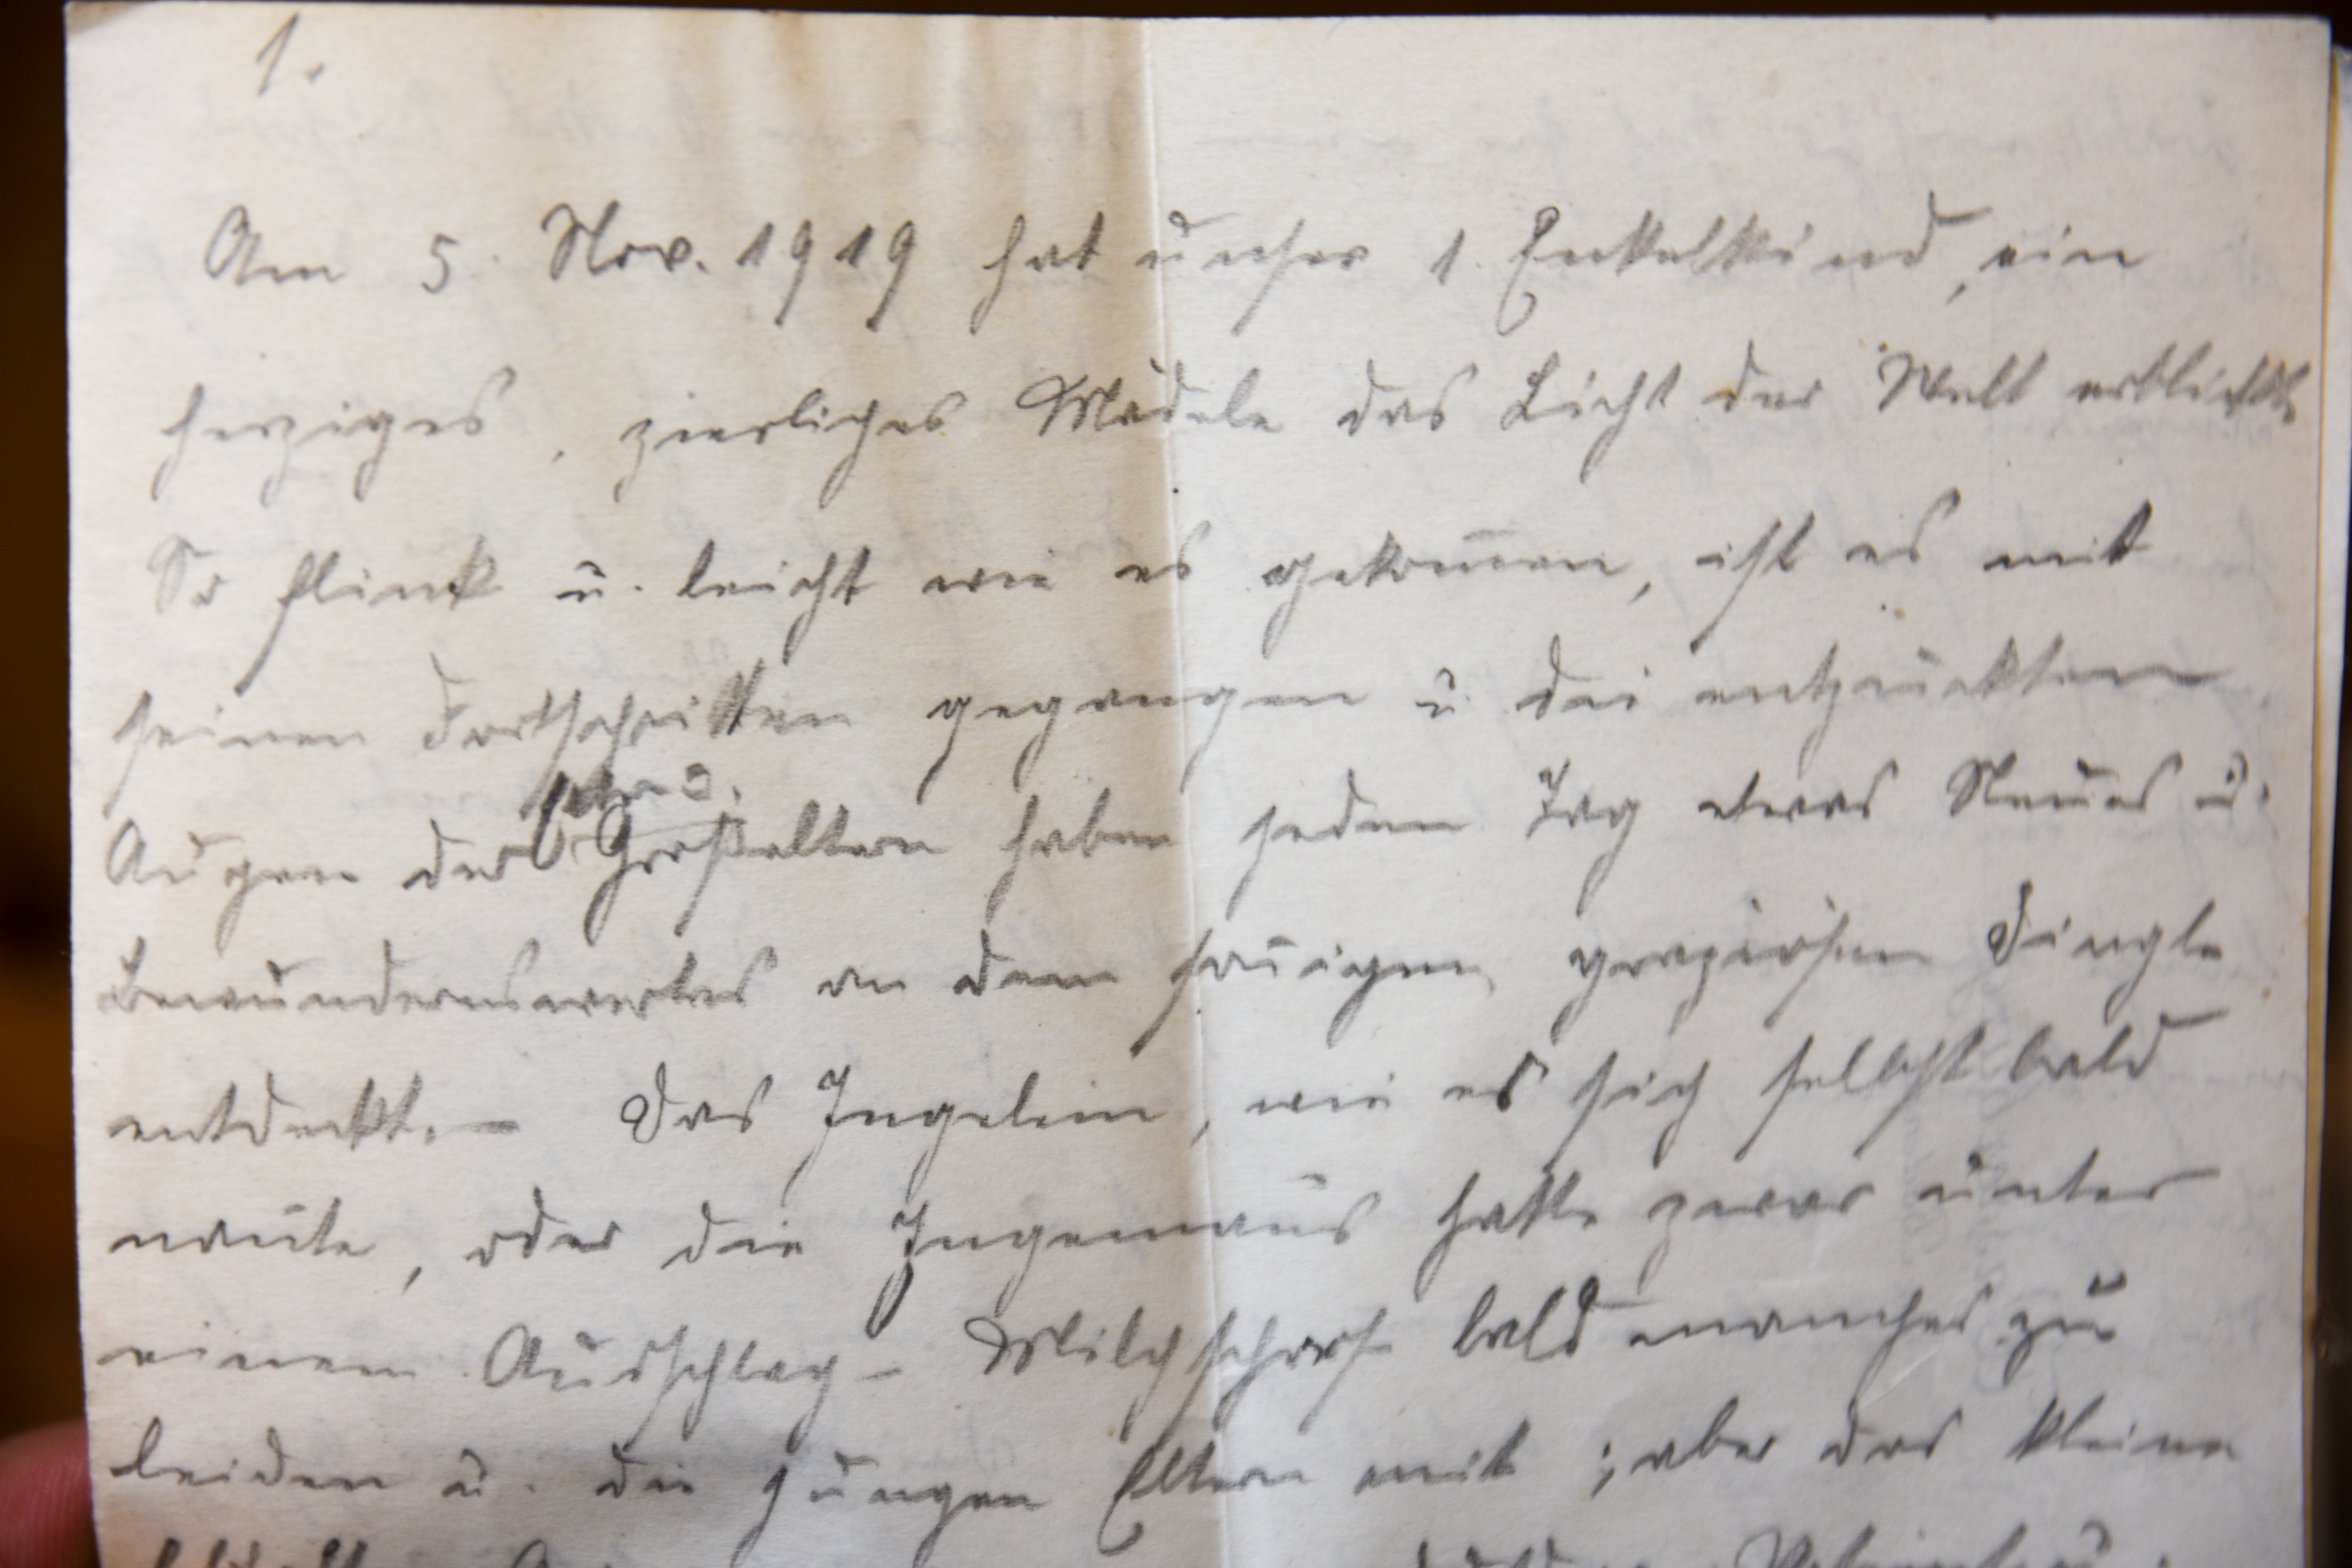 1.
Am 5. Nov. 1919 hat unser 1. Enkelkind, ein
herziges, zierliches Mädele das Licht der Welt erblickt.
So flink u. leicht wie es gekom̅en, ist es mit
seinen Fortschritten gegangen u. die entzückten
Augen der Großeltern haben jeden Tag etwas Neues u.
Bewundernswertes an dem graziösen Dingle
entdeckt. – Das Ingelein, wie es sich selbst bald
nannte, oder die Ingemaus hatte zwar unter
einem Ausschlag – Milchschorf bald manches zu
leiden u. die jungen Eltern mit; aber das kleine